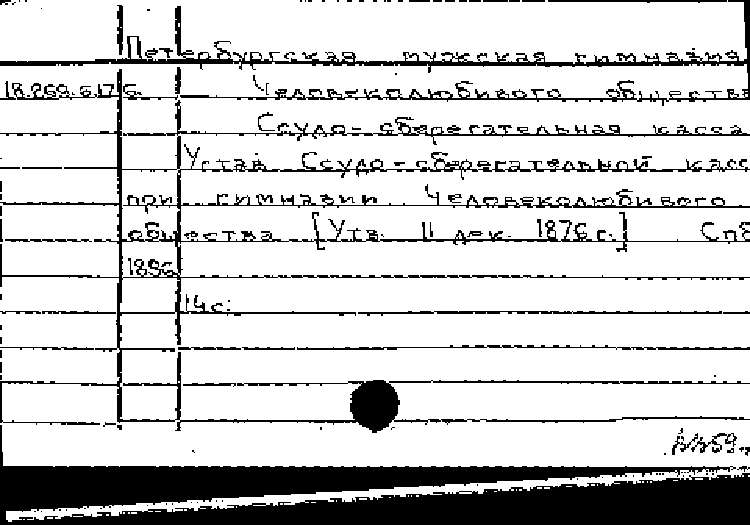 Петербургская мужская гимназия
18.269.5.176. Человеколюбивого общества
Ссудо-сберегательная касса
Устав Ссудо-сберегательной касс
при гимназии Человеколюбивого
общества [Утв. 11 дек. 1876 г.] Спб
1896
14 с.